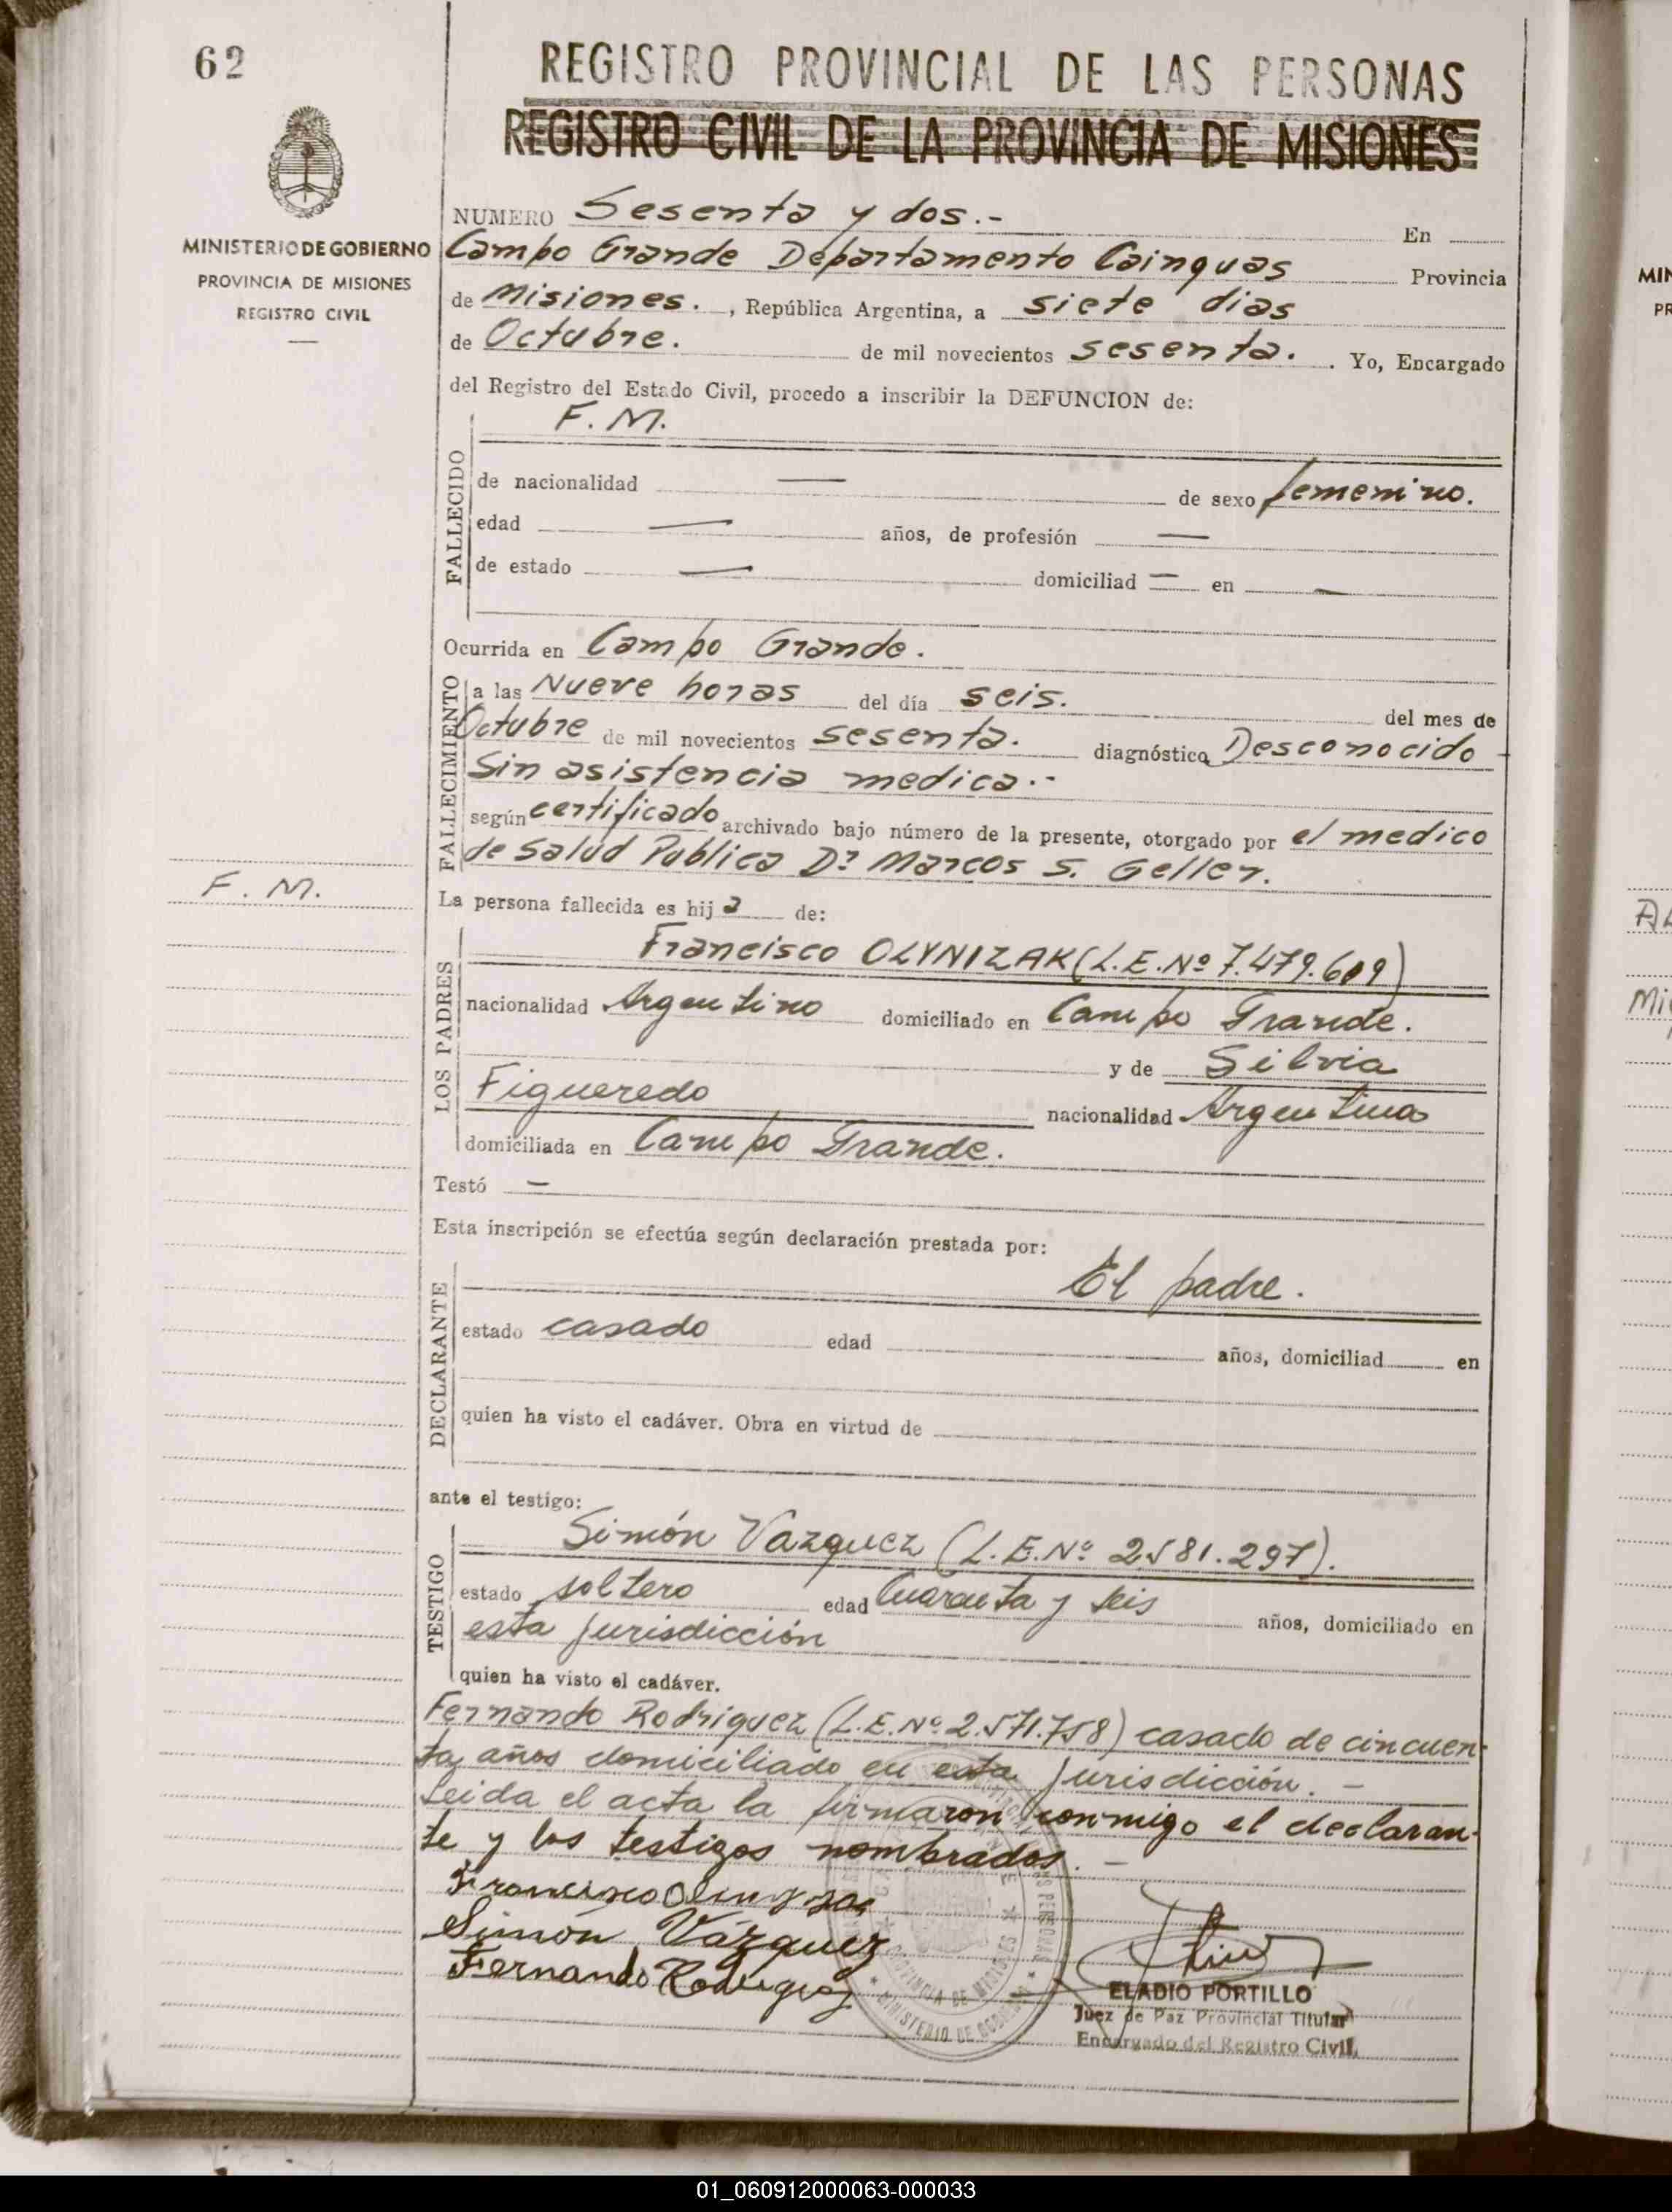 62
REGISTRO PROVINCIAL DE LAS PERSONAS
REGISTRO CIVIL DE LA PROVINCIA DE MISIONES
MINISTERIO DE GOBIERNO
PROVINCIA DE MISIONES
REGISTRO CIVIL
NUMERO Sesenta y dos.- En
Campo Grande Departamento Cainguas Provincia
de Misiones. , República Argentina, a siete dias
de Octubre. de mil novecientos sesenta. . Yo, Encargado
del Registro del Estado Civil, procedo a inscribir la DEFUNCION de:
F. M.
FALLECIDO
de nacionalidad — de sexo femenino.
edad — años, de profesión —
de estado — domiciliad — en —
Ocurrida en Campo Grande.
FALLECIMIENTO
a las Nueve horas del día seis. del mes de
Octubre de mil novecientos sesenta. diagnóstico Desconocido
Sin asistencia medica.-
según certificado archivado bajo número de la presente, otorgado por el medico
de Salud Publica Dr Marcos S. Geller.
F. M.
La persona fallecida es hija de:
LOS PADRES
Francisco OLYNIZAK (L.E.Nº 7.479.609)
nacionalidad Argentino domiciliado en Campo Grande.
y de Silvia
Figueredo nacionalidad Argentina
domiciliada en Campo Grande.
Testó —
Esta inscripción se efectúa según declaración prestada por:
DECLARANTE
El padre.
estado casado edad años, domiciliad en
quien ha visto el cadáver. Obra en virtud de
ante el testigo:
TESTIGO
Simón Vazquez (L.E.Nº 2.581.297).
estado soltero edad Cuarenta y seis años, domiciliado en
esta jurisdicción
quien ha visto el cadáver.
Fernando Rodriguez (L.E.Nº 2.571.758) casado de cincuen-
ta años domiciliado en esta jurisdicción. -
Leida el acta la firmaron conmigo el declaran-
te y los testigos nombrados. -
Francisco
Simón Vázquez
Fernando Rodriguez
PROVINCIA DE MISIONES
MINISTERIO DE
ELADIO PORTILLO
Juez de Paz Provincial Titular
Encargado del Registro Civil
01_060912000063-000033